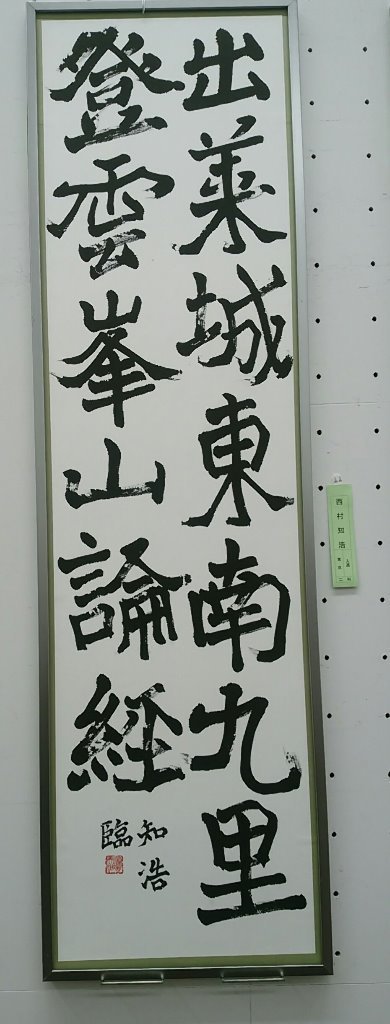 出萊城東南九里
登雲峯山論經
知浩
臨
西村知浩